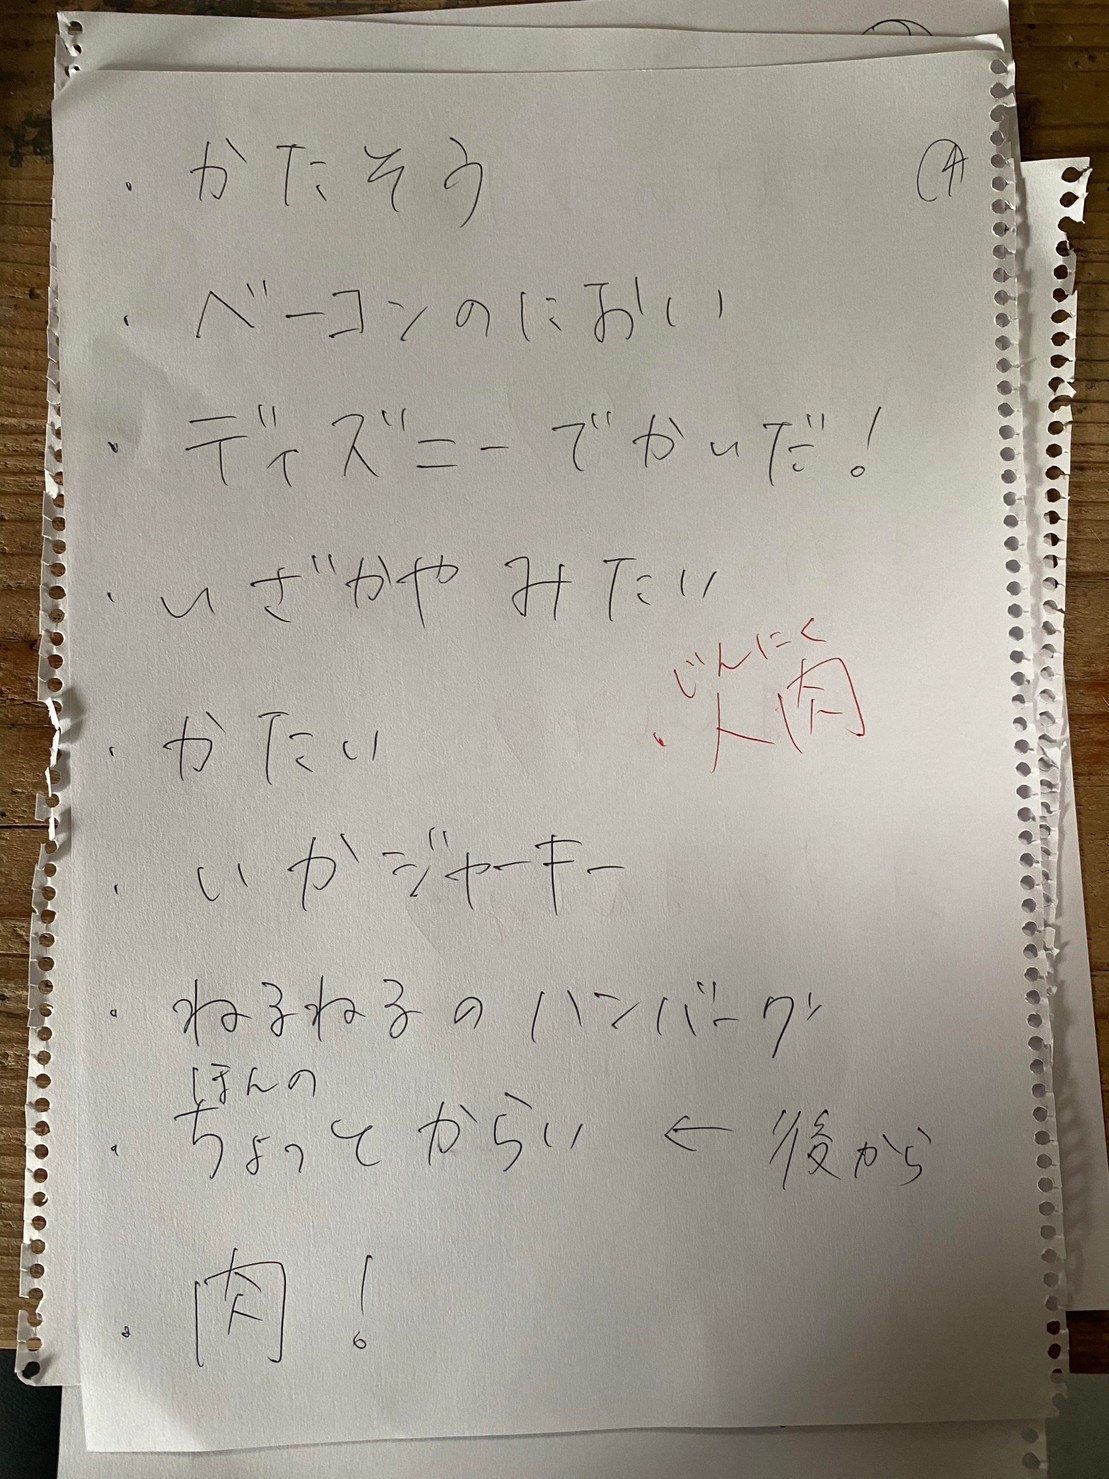 ④
・かたそう
・ベーコンのにおい
・ディズニーでかいだ！
・いざかやみたい
じんにく
・人肉
・かたい
・いかジャーキー
・ねるねるのハンバーグ
ほんの
・ちょっとからい ← 後から
・肉！